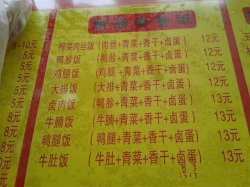 5-10元 榨菜肉丝饭(肉丝+青菜+香干+卤蛋) 12元
5元 鸭胗饭(鸭胗+青菜+香干+卤蛋) 12元
5元 鸡腿饭(鸡腿+青菜+香干+卤蛋) 12元
5元 大排饭(大排+青菜+香干+卤蛋) 12元
6元 卤肉饭(卤肉+青菜+香干+卤蛋) 13元
8元 牛腩饭(牛腩+青菜+香干+卤蛋) 13元
8元 鸭腿饭(鸭腿+青菜+香干+卤蛋) 13元
牛肚饭(牛肚+青菜+香干+卤蛋) 13元